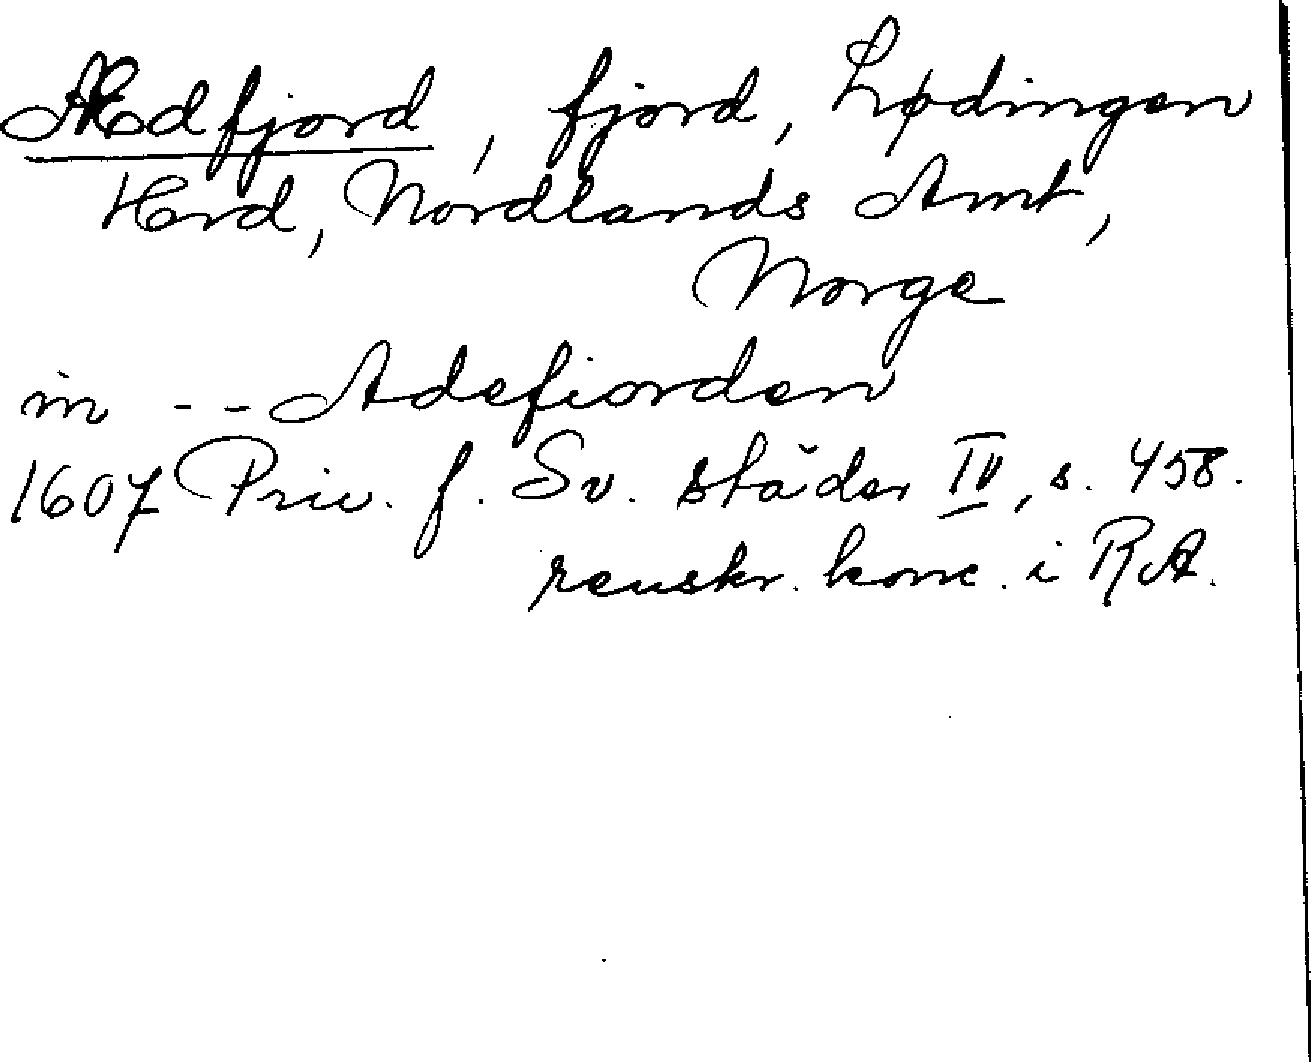 Ædfjord, fjord, Lødingen
Herd, Nordlands Amt,
Norge
in -- Adefiorden
1607 Priv. f. Sv. städer IV, s. 458.
renskr. konc. i RA.